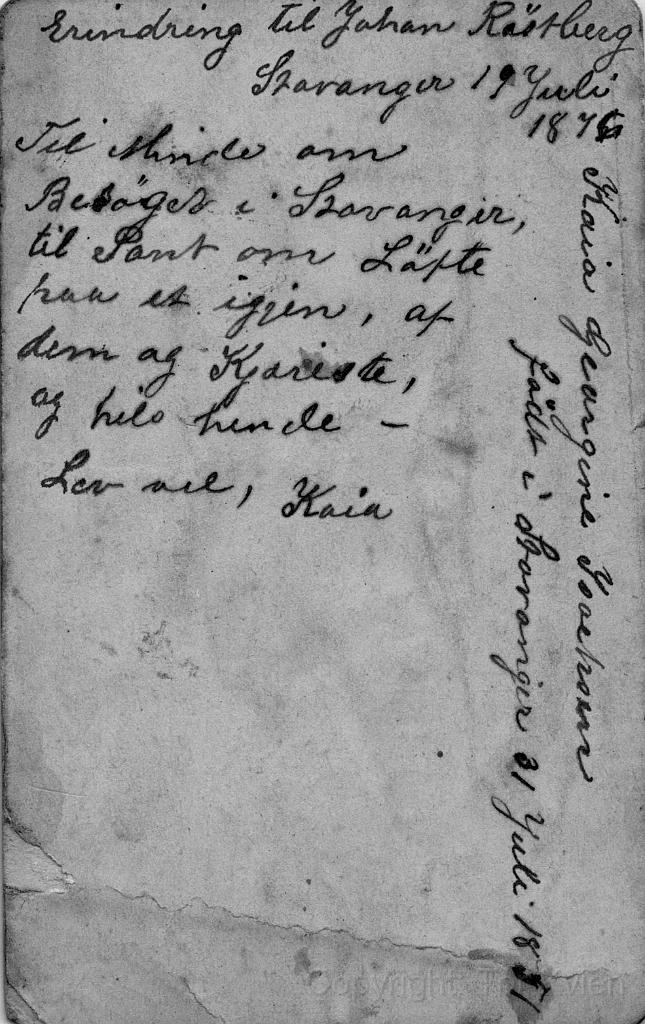 Erindring til Johan Röstberg
Stavanger 19 Juli
187
Til Minde om
Besöget i Stavanger,
til Pant om Löfte
paa et igjen, af
dem og Kjæreste,
og hils hende –
Lev vel, Kaia
Kaia Georgine
födt i Stavanger 31 Juli 1851
Copyright